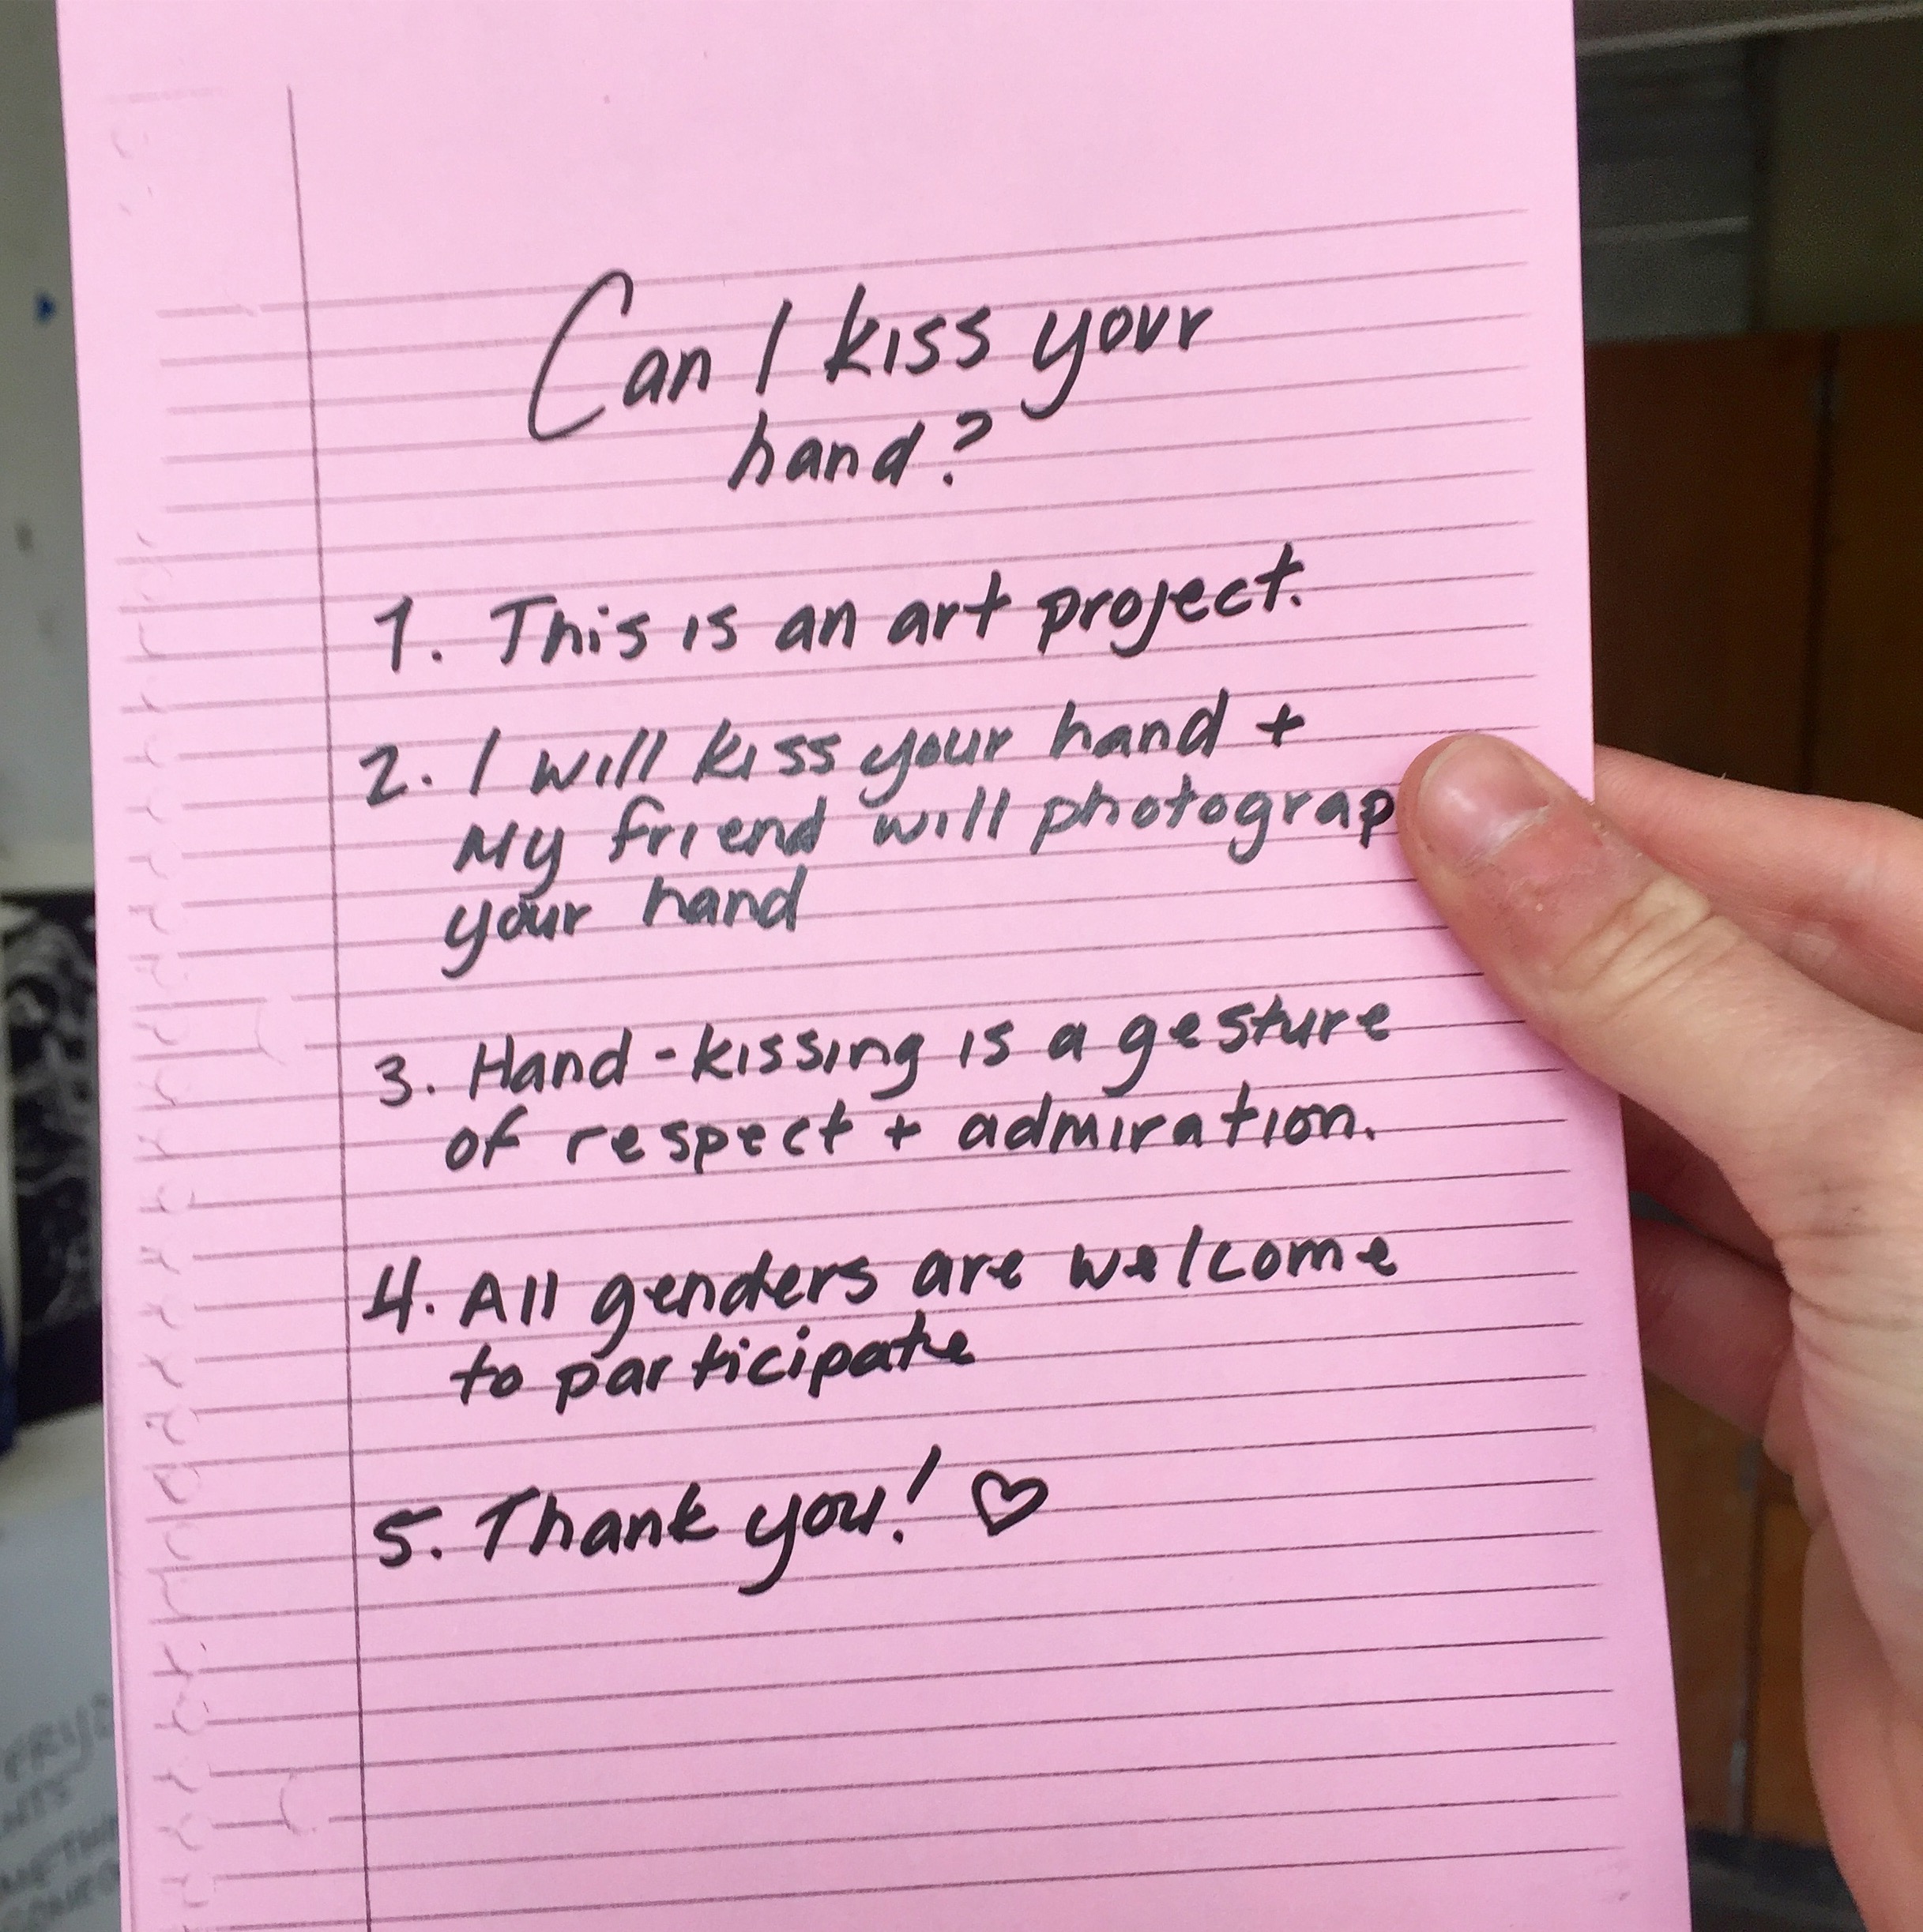 Can I kiss your
hand?
1. This is an art project.
2. I will kiss your hand +
My friend will photograp
your hand
3. Hand-kissing is a gesture
of respect + admiration.
4. All genders are welcome
to participate
5. Thank you! ♡